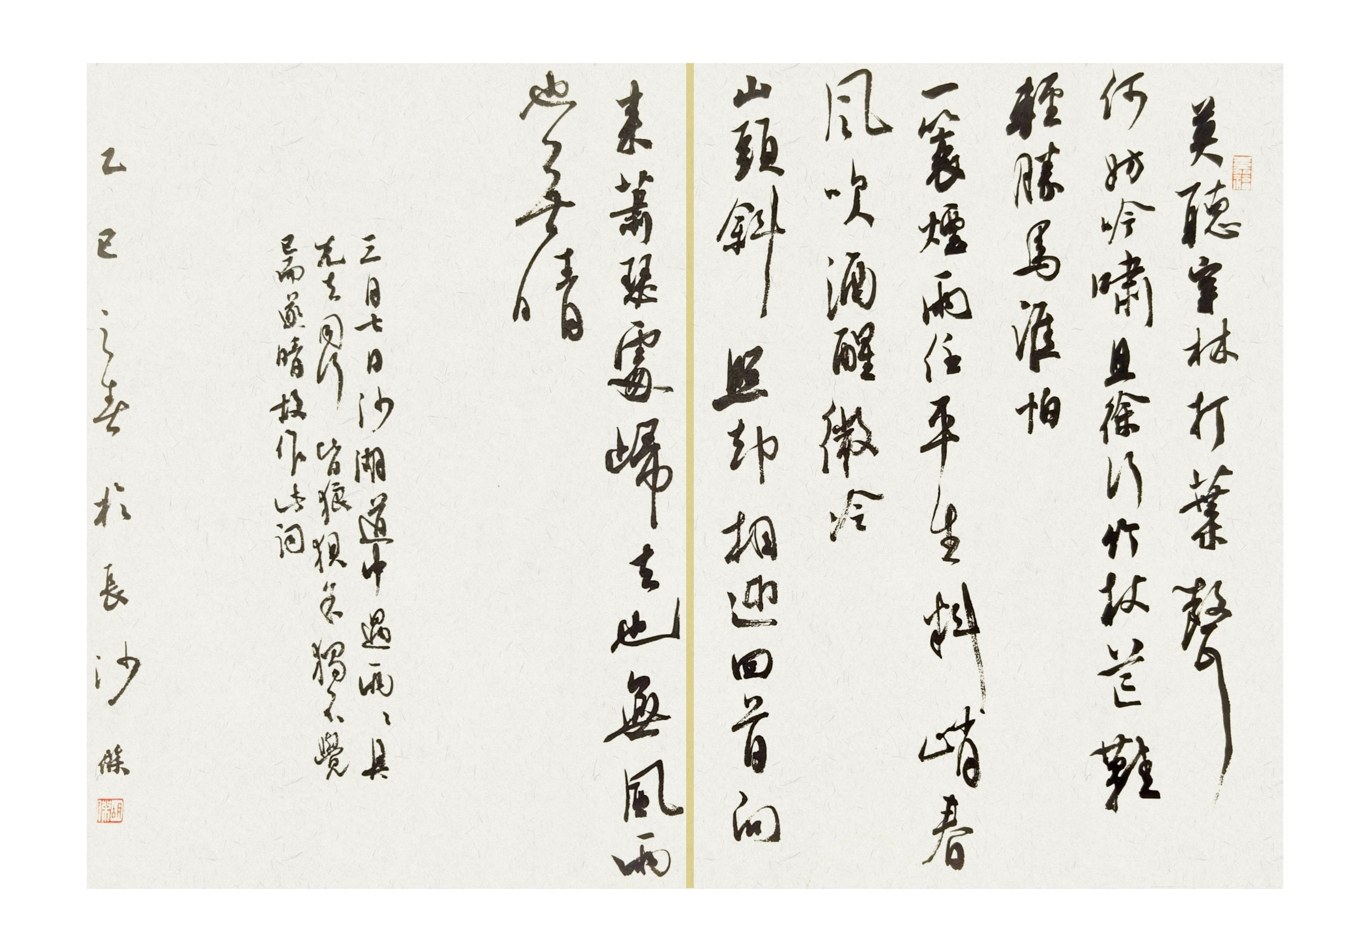 莫聽穿林打葉聲
何妨吟嘯且徐行竹杖芒鞋
輕勝馬誰怕
一蓑煙雨任平生料峭春
風吹酒醒微冷
山頭斜照却相迎回首向
来蕭瑟處歸去也無風雨
也無晴
三月七日沙湖道中遇雨〻具
先去同行皆狼狽余獨不覺
已而遂晴故作此詞
乙巳之春於長沙